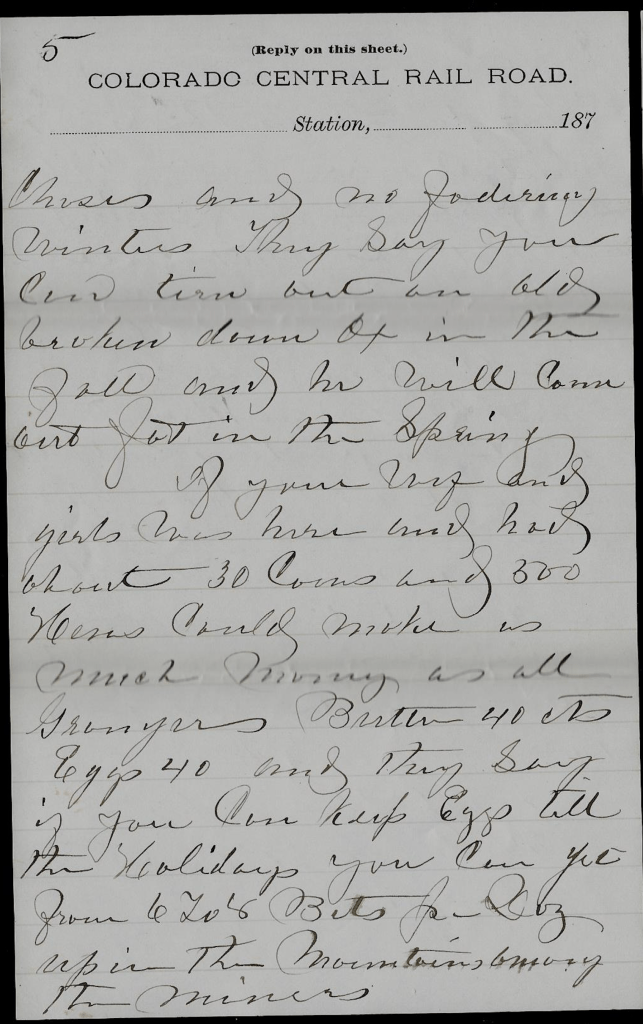 5
(Reply on this sheet.)
COLORADO CENTRAL RAIL ROAD.
Station, 187
and no fodering
Winters They Say you
Can tirn out an old
broken down Ox in the
fall and he Will Come
out fat in the Spring
If your Wif and
girls Was here and had
about 30 Cows and 500
Hens Could make as
much Money as all
Grangers Butter 40 cts
Eggs 40 and they Say
if you Can Keep Eggs till
the Holidays you Can get
from 6 to 8 Bits per Doz
up in the Mountains among
the miners